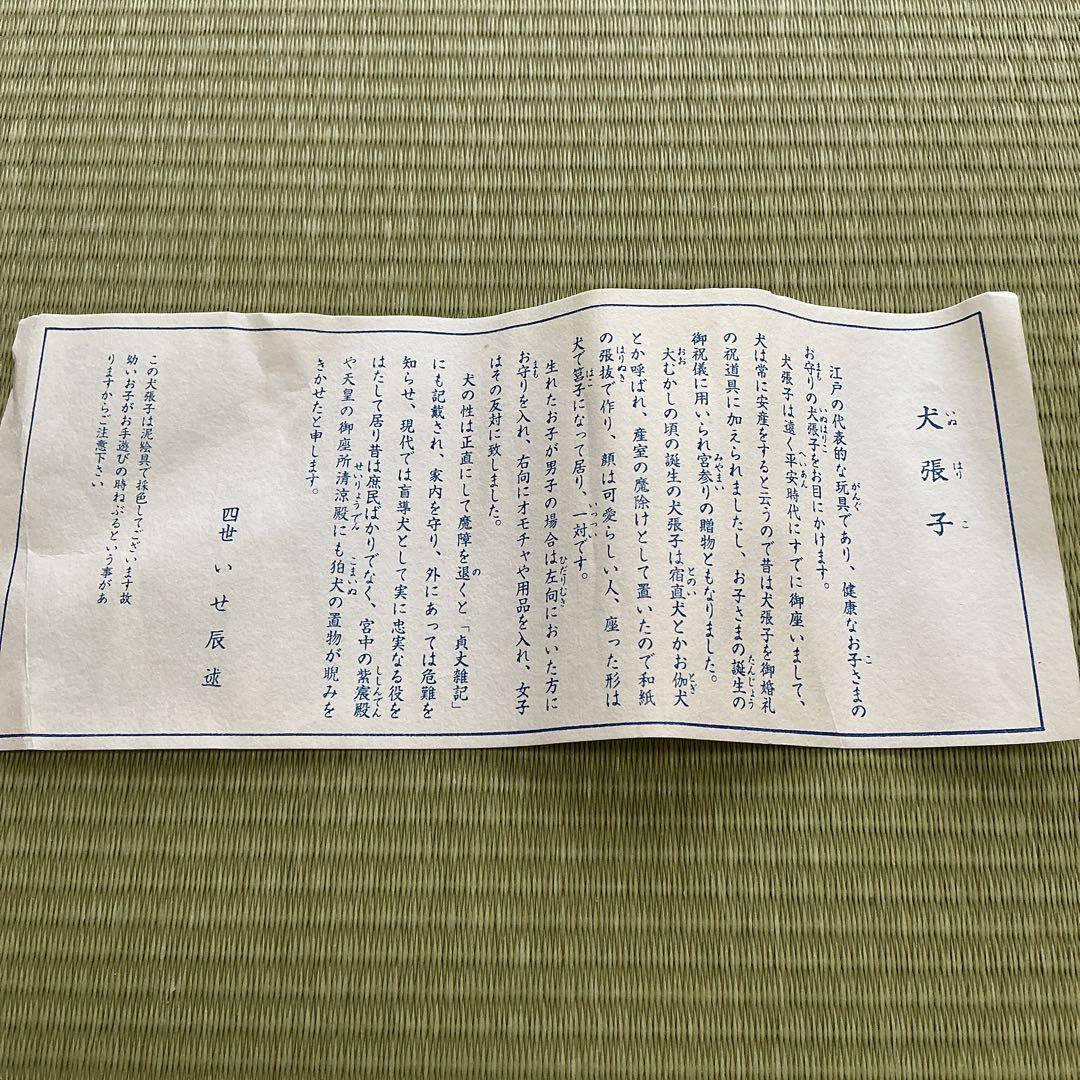 犬張子
江戸の代表的な玩具であり、健康なお子さまの
お守りの犬張子をお目にかけます。
犬張子は遠く平安時代にすでに御座いまして、
犬は常に安産をすると云うので昔は犬張子を御婚礼
の祝道具に加えられましたし、お子さまの誕生の
御祝儀に用いられ宮参りの贈物ともなりました。
大むかしの頃の誕生の犬張子は宿直犬とかお伽犬
とか呼ばれ、産室の魔除けとして置いたので和紙
の張抜で作り、顔は可愛らしい人、座った形は
犬で筥子になって居り、一対です。
生れたお子が男子の場合は左向においた方に
お守りを入れ、右向にオモチャや用品を入れ、女子
はその反対に致しました。
犬の性は正直にして魔障を退くと「貞丈雑記」
にも記載され、家内を守り、外にあっては危難を
知らせ、現代では盲導犬として実に忠実なる役を
はたして居り昔は庶民ばかりでなく、宮中の紫宸殿
や天皇の御座所清涼殿にも狛犬の置物が睨みを
きかせたと申します。
四世 いせ辰 述
この犬張子は泥絵具で採色してございます故
幼いお子がお手遊びの時ねぶるという事があ
りますからご注意下さい